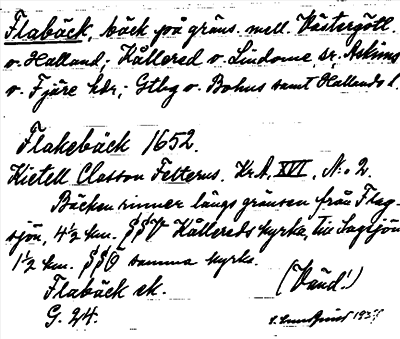 Flabäck, bäck på gräns. mell. Västergötl.
o. Halland; Kållered o. Lindome sr, Askims
o. Fjäre hdr; Gtbg o. Bohus samt Hallands l.
Flakebäck 1652.
Kietell Classon Felterus. Kr.A. XVI, N:o 2.
Bäcken rinner längs gränsen från Flag-
sjön, 4½ km. SSV Kållereds kyrka, till Sagsjön
1½ km. SSO samma kyrka.
Flabäck ek. (Vänd!)
G. 24. S. Lundquist